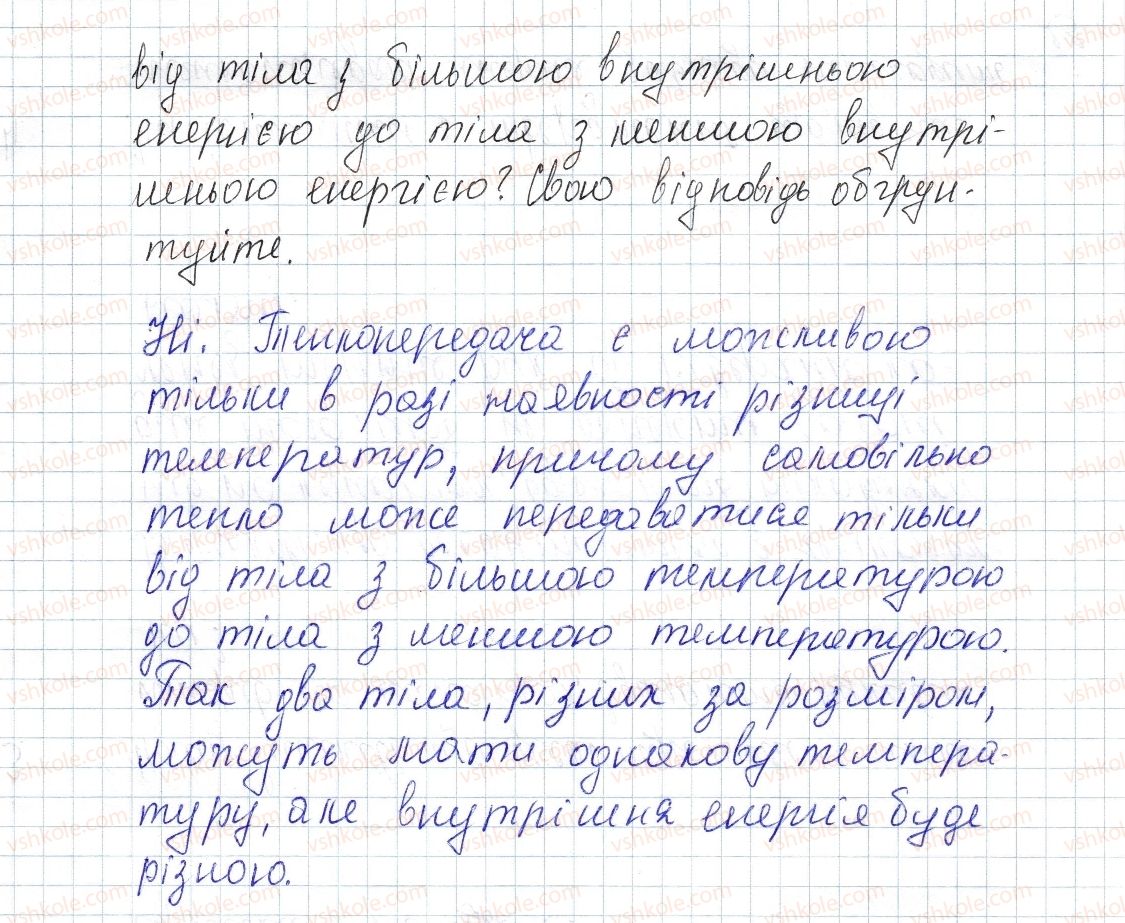 від тіла з більшою внутрішньою
енергією до тіла з меншою внутрі-
шньою енергією? Свою відповідь обґрун-
туйте.
Ні. Теплопередача є можливою
тільки в разі наявності різниці
температур, причому самовільно
тепло може передаватися тільки
від тіла з більшою температурою
до тіла з меншою температурою.
Так два тіла, різних за розміром,
можуть мати однакову темпера-
туру, але внутрішня енергія буде
різною.